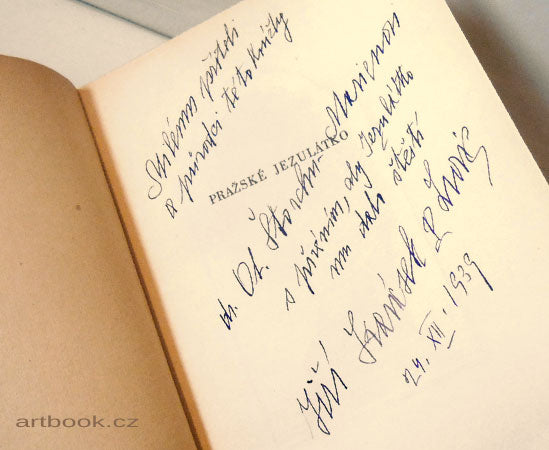 Milému příteli
a původci této knížky
PRAŽSKÉ JEZULÁTKO
dr. Ot. Štorchu-Marienovi
s přáním, aby Jezulátko
mu dalo štěstí
Jiří Karásek z Lvovic
24. XII. 1939
artbook.cz